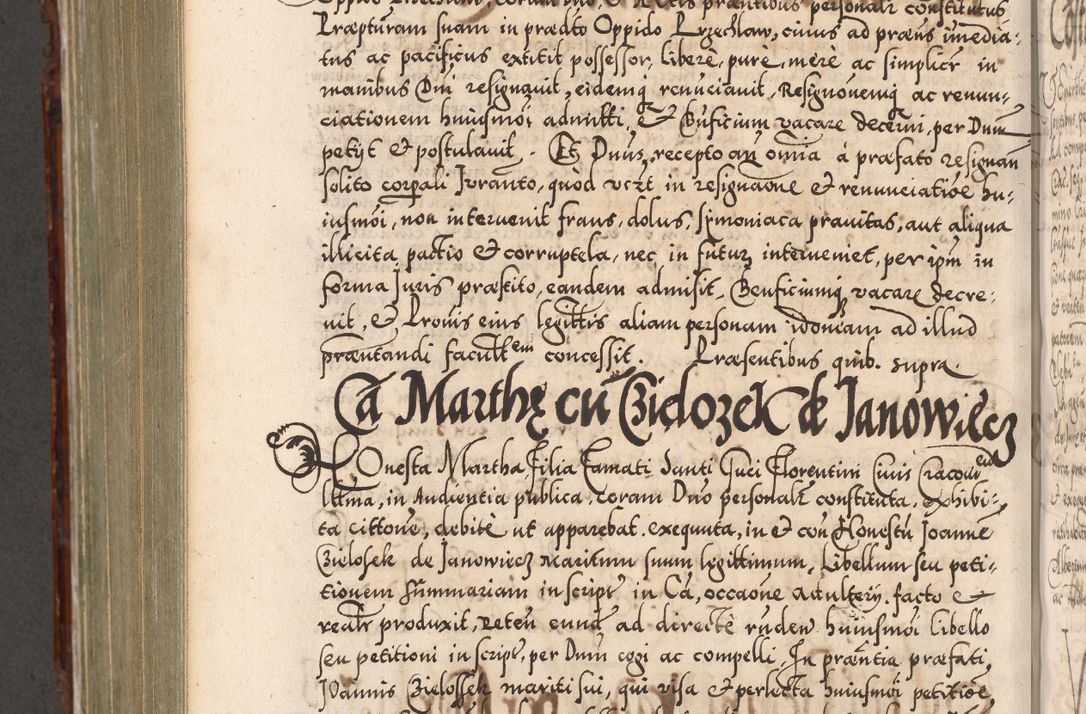 Præpturam suam in prædto Oppido Przechlaw, cuius ad præns imedia-
tus ac pacificus extitit possessor, liberè, purè, merè ac simplicr in
manibus Dni resignavit, eidemq renuciavit, Resignonemq ac renun-
ciationem huiusmoi admitti, & Bnficium vacare decerni, per Dnum
petijt & postulavit. Et Dnus, recepto an omia à præfato resignan
solito corpali Iuranto, quòd vczt in resignaone & renunciatioe hu-
iusmoi, non intervenit fraus, dolus, symoniaca pravitas, aut aliqua
illicita pactio & corruptela, nec in futur interveniet, per ipm in
forma Iuris præstito, eandem admisit, Benficiumq vacare decre-
vit, & Provis eius legittis aliam personam idoneam ad illud
præntandi facultem concessit. Præsentibus quib. supra.
Ca Marthę cū Czielozek de Janowiecz
Honesta Martha Filia Famati Santi Guci Florentini Civis Cracovien
lttima, in Audientia publica, coram Dno personalr constituta, exhibi-
ta cittone, debitè ut apparebat exequuta, in & con Honestū Joanne
Czielosek de Janowiecz Maritum suum legittimum, Libellum seu peti-
tionem summariam in script in Ca, occaone adulterij facto &
realr produxit, Peten eund ad directè rnden huiusmoi libello
seu petitioni in script, per Dnum cogi ac compelli, In præntia præfati
Joannis Czielossek mariti sui, qui visa & perlecta huiusmoi petitioe